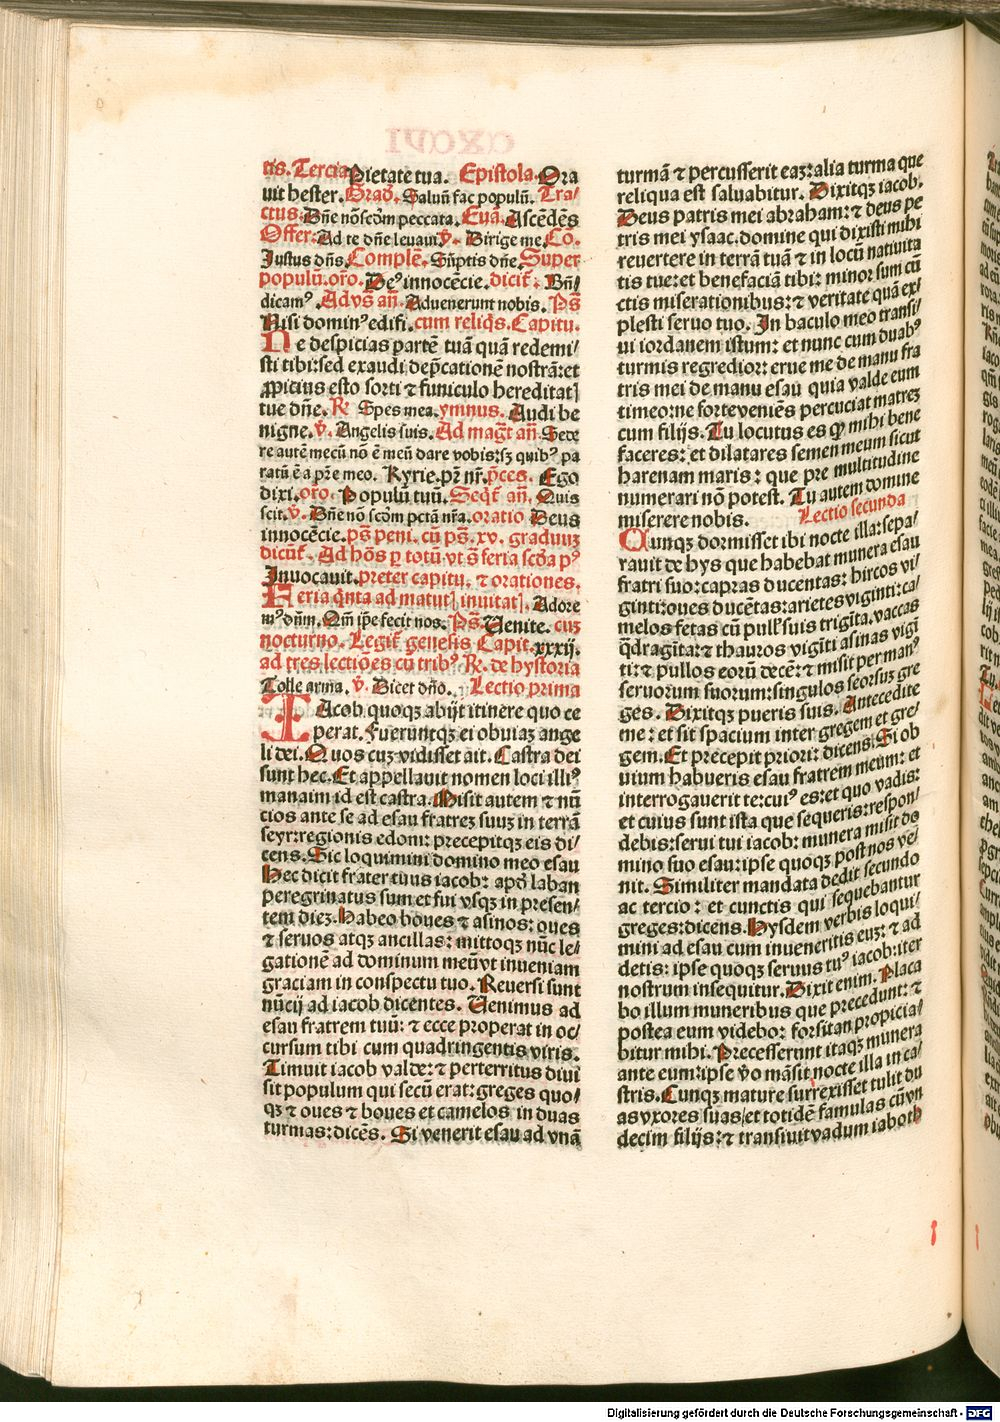 tis. Tercia Pietate tua. Epistola. Ora
uit hester. Grad̄. Saluū fac populū. Tra/
ctus. Dn̄e nō scd̄m peccata. Euā. Ascēdēs
Offer. Ad te dn̄e leuaui. v̄. Dirige me. Cō.
Justus dn̄s. Complē. Sūptis dn̄e. Super
populū. or̄o. De⁹ innocēcie. dicit̄. Bn̄/
dicam⁹. Adv̄s an̄. Aduenerunt nobis. Ps̄
Nisi domin⁹ edifi. cum reliq̄s. Capitu.
Ne despicias partē tuā quā redemi/
sti tibi: sed exaudi dep̄cationē nostrā: et
ꝓpicius esto sorti ⁊ funiculo hereditatꝭ
tue dn̄e. R̄ Spes mea. ymnus. Audi be
nigne. v̄. Angelis suis. Ad maḡt an̄. Sede
re autē mecū nō ē meū dare vobis: sꝫ quib⁹ pa
ratū ē a p̄re meo. Kyrie. pr̄ nr̄. p̄ces. Ego
dixi. or̄o. Populū tuū. Seqt̄ an̄. Quis
scit. v̄. Dn̄e nō scd̄m pctā nr̄a. oratio Deus
innocēcie. ps̄ peni. cū ps̄. xv. graduuꝫ
dicūt̄. Ad hōs ꝑ totū vt s̄ feria scd̄a p⁹
Inuocauit. preter capitu. ⁊ orationes.
Feria q̄nta ad matutꝭ inuitatꝭ. Adore
m⁹ dn̄m. Qm̄ ip̄e fecit nos. Ps̄. Uenite. cuꝫ
nocturno. Legit̄ genesis Capit. xxxij.
ad tres lectiōes cū trib⁹ R̄. de hystoria
Tolle arma. v̄. Dicet dn̄o. Lectio prima
IAcob quoqꝫ abijt itinere quo ce
perat. Fueruntqꝫ ei obuiaꝫ ange
li dei. Quos cuꝫ vidisset ait. Castra dei
sunt hec. Et appellauit nomen loci illi⁹
manaim id est castra. Misit autem ⁊ nū
cios ante se ad esau fratreꝫ suuꝫ in terrā
seyr: regionis edom: precepitqꝫ eis di/
cens. Sic loquimini domino meo esau
Hec dicit frater tuus iacob: apd̄ laban
peregrinatus sum et fui vsqꝫ in presen/
tem dieꝫ. Habeo boues ⁊ asinos: oues
⁊ seruos atqꝫ ancillas: mittoqꝫ nūc le/
gationē ad dominum meū vt inueniam
graciam in conspectu tuo. Reuersi sunt
nūcij ad iacob dicentes. Uenimus ad
esau fratrem tuū: ⁊ ecce properat in oc/
cursum tibi cum quadringentis viris.
Timuit iacob valde: ⁊ perterritus diui
sit populum qui secū erat: greges quo/
qꝫ ⁊ oues ⁊ boues et camelos in duas
turmas: dicēs. Si venerit esau ad vnā
turmā ⁊ percusserit eaꝫ: alia turma que
reliqua est saluabitur. Dixitqꝫ iacob.
Deus patris mei abraham: ⁊ deus pa
tris mei ysaac. domine qui dixisti mihi
reuertere in terrā tuā ⁊ in locū natiuita
tis tue: et benefaciā tibi: minor sum cū
ctis miserationibus: ⁊ veritate quā ex/
plesti seruo tuo. In baculo meo transi/
ui iordanem istum: et nunc cum duab⁹
turmis regredior: erue me de manu fra
tris mei de manu esau quia valde eum
timeo: ne forte veniēs percuciat matreꝫ
cum filijs. Tu locutus es qꝫ mihi bene
faceres: et dilatares semen meum sicut
harenam maris: que pre multitudine
numerari nō potest. Tu autem domine
miserere nobis. Lectio secunda
Cunqꝫ dormisset ibi nocte illa: sepa/
rauit de hys que habebat munera esau
fratri suo: capras ducentas: hircos vi/
ginti: oues ducētas: arietes viginti: ca/
melos fetas cū pull⁹ suis trigīta. vaccas
q̄dragīta: ⁊ thauros vigīti asinas vigī
ti: ⁊ pullos eorū decē: ⁊ misit per man⁹
seruorum suorum: singulos seorsuꝫ gre
ges. Dixitqꝫ pueris suis. Antecedite
me: et sit spacium inter gregem et gre/
gem. Et precepit priori: dicens. Si ob
uium habueris esau fratrem meum: et
interrogauerit te: cui⁹ es: et quo vadis:
et cuius sunt ista que sequeris: respon/
debis: serui tui iacob: munera misit do
mino suo esau: ipse quoqꝫ post nos ve/
nit. Similiter mandata dedit secundo
ac tercio: et cunctis qui sequebantur
greges: dicens. Hysdem verbis loqui/
mini ad esau cum inueneritis euꝫ: ⁊ ad
detis: ipse quoqꝫ seruus tu⁹ iacob: iter
nostrum insequitur. Dixit enim. Placa
bo illum muneribus que precedunt: ⁊
postea eum videbo: forsitan propicia/
bitur mihi. Precesserunt itaqꝫ munera
ante eum: ipse v̄o māsit nocte illa in ca/
stris. Cunqꝫ mature surrexisset tulit du
as vxores suas/ et totidē famulas cū vn
decim filijs: ⁊ transiuit vadum iaboth
Digitalisierung gefördert durch die Deutsche Forschungsgemeinschaft - DFG